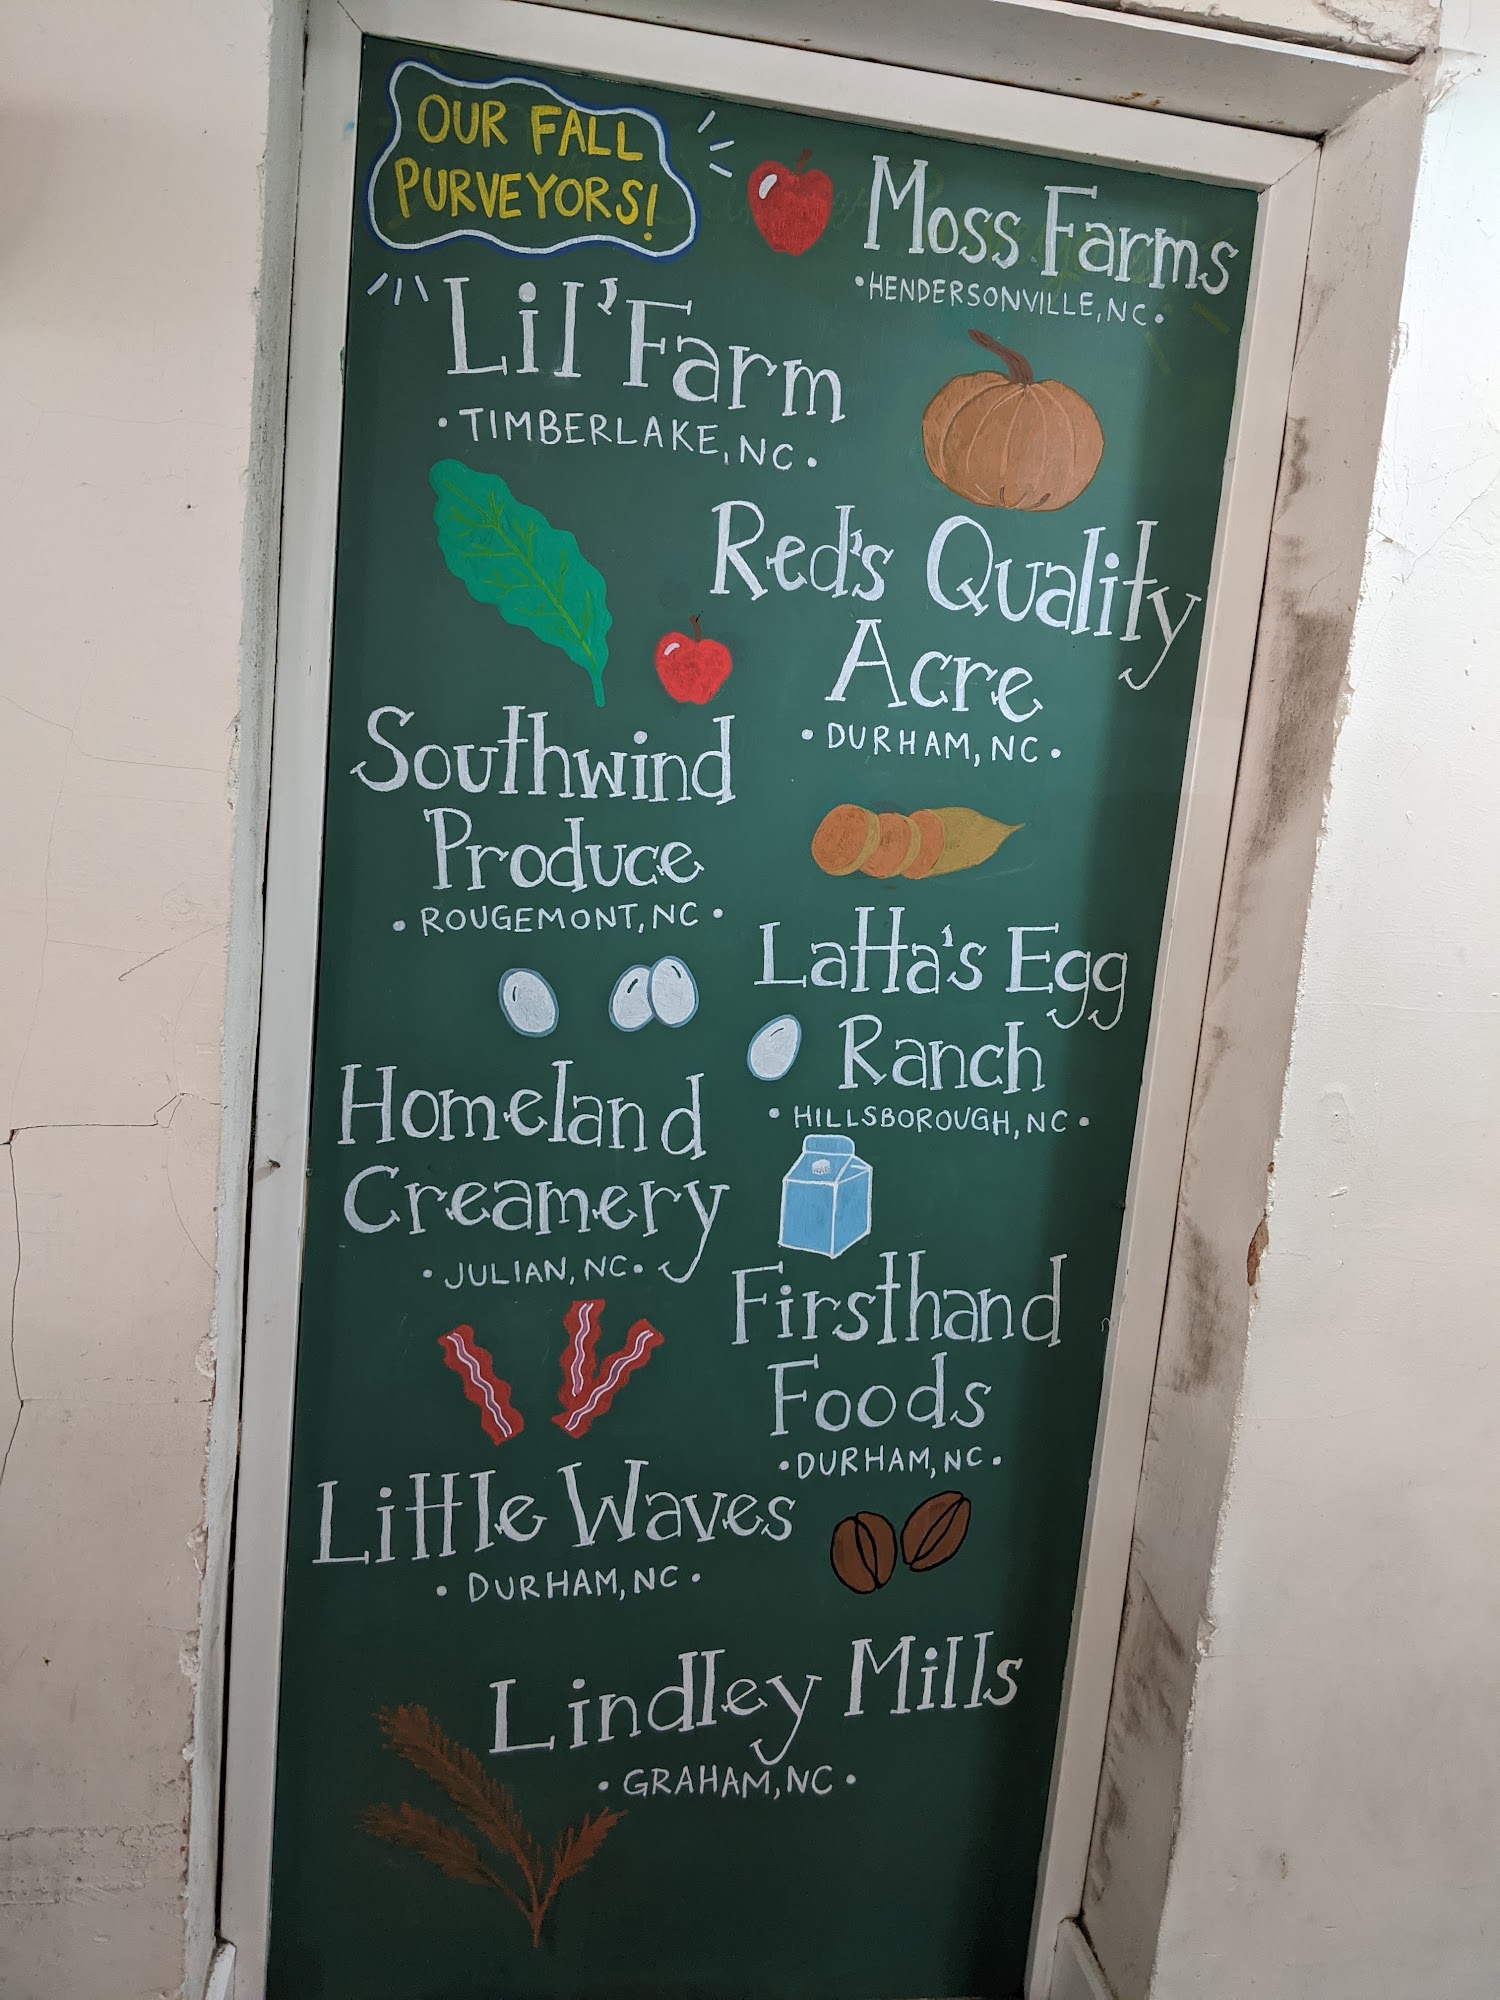 OUR FALL
PURVEYORS!
Moss Farms
• HENDERSONVILLE, NC •
Lil' Farm
• TIMBERLAKE, NC •
Red's Quality
Acre
• DURHAM, NC •
Southwind
Produce
• ROUGEMONT, NC •
Latta's Egg
Ranch
• HILLSBOROUGH, NC •
Homeland
Creamery
• JULIAN, NC •
Firsthand
Foods
• DURHAM, NC •
Little Waves
• DURHAM, NC •
Lindley Mills
• GRAHAM, NC •